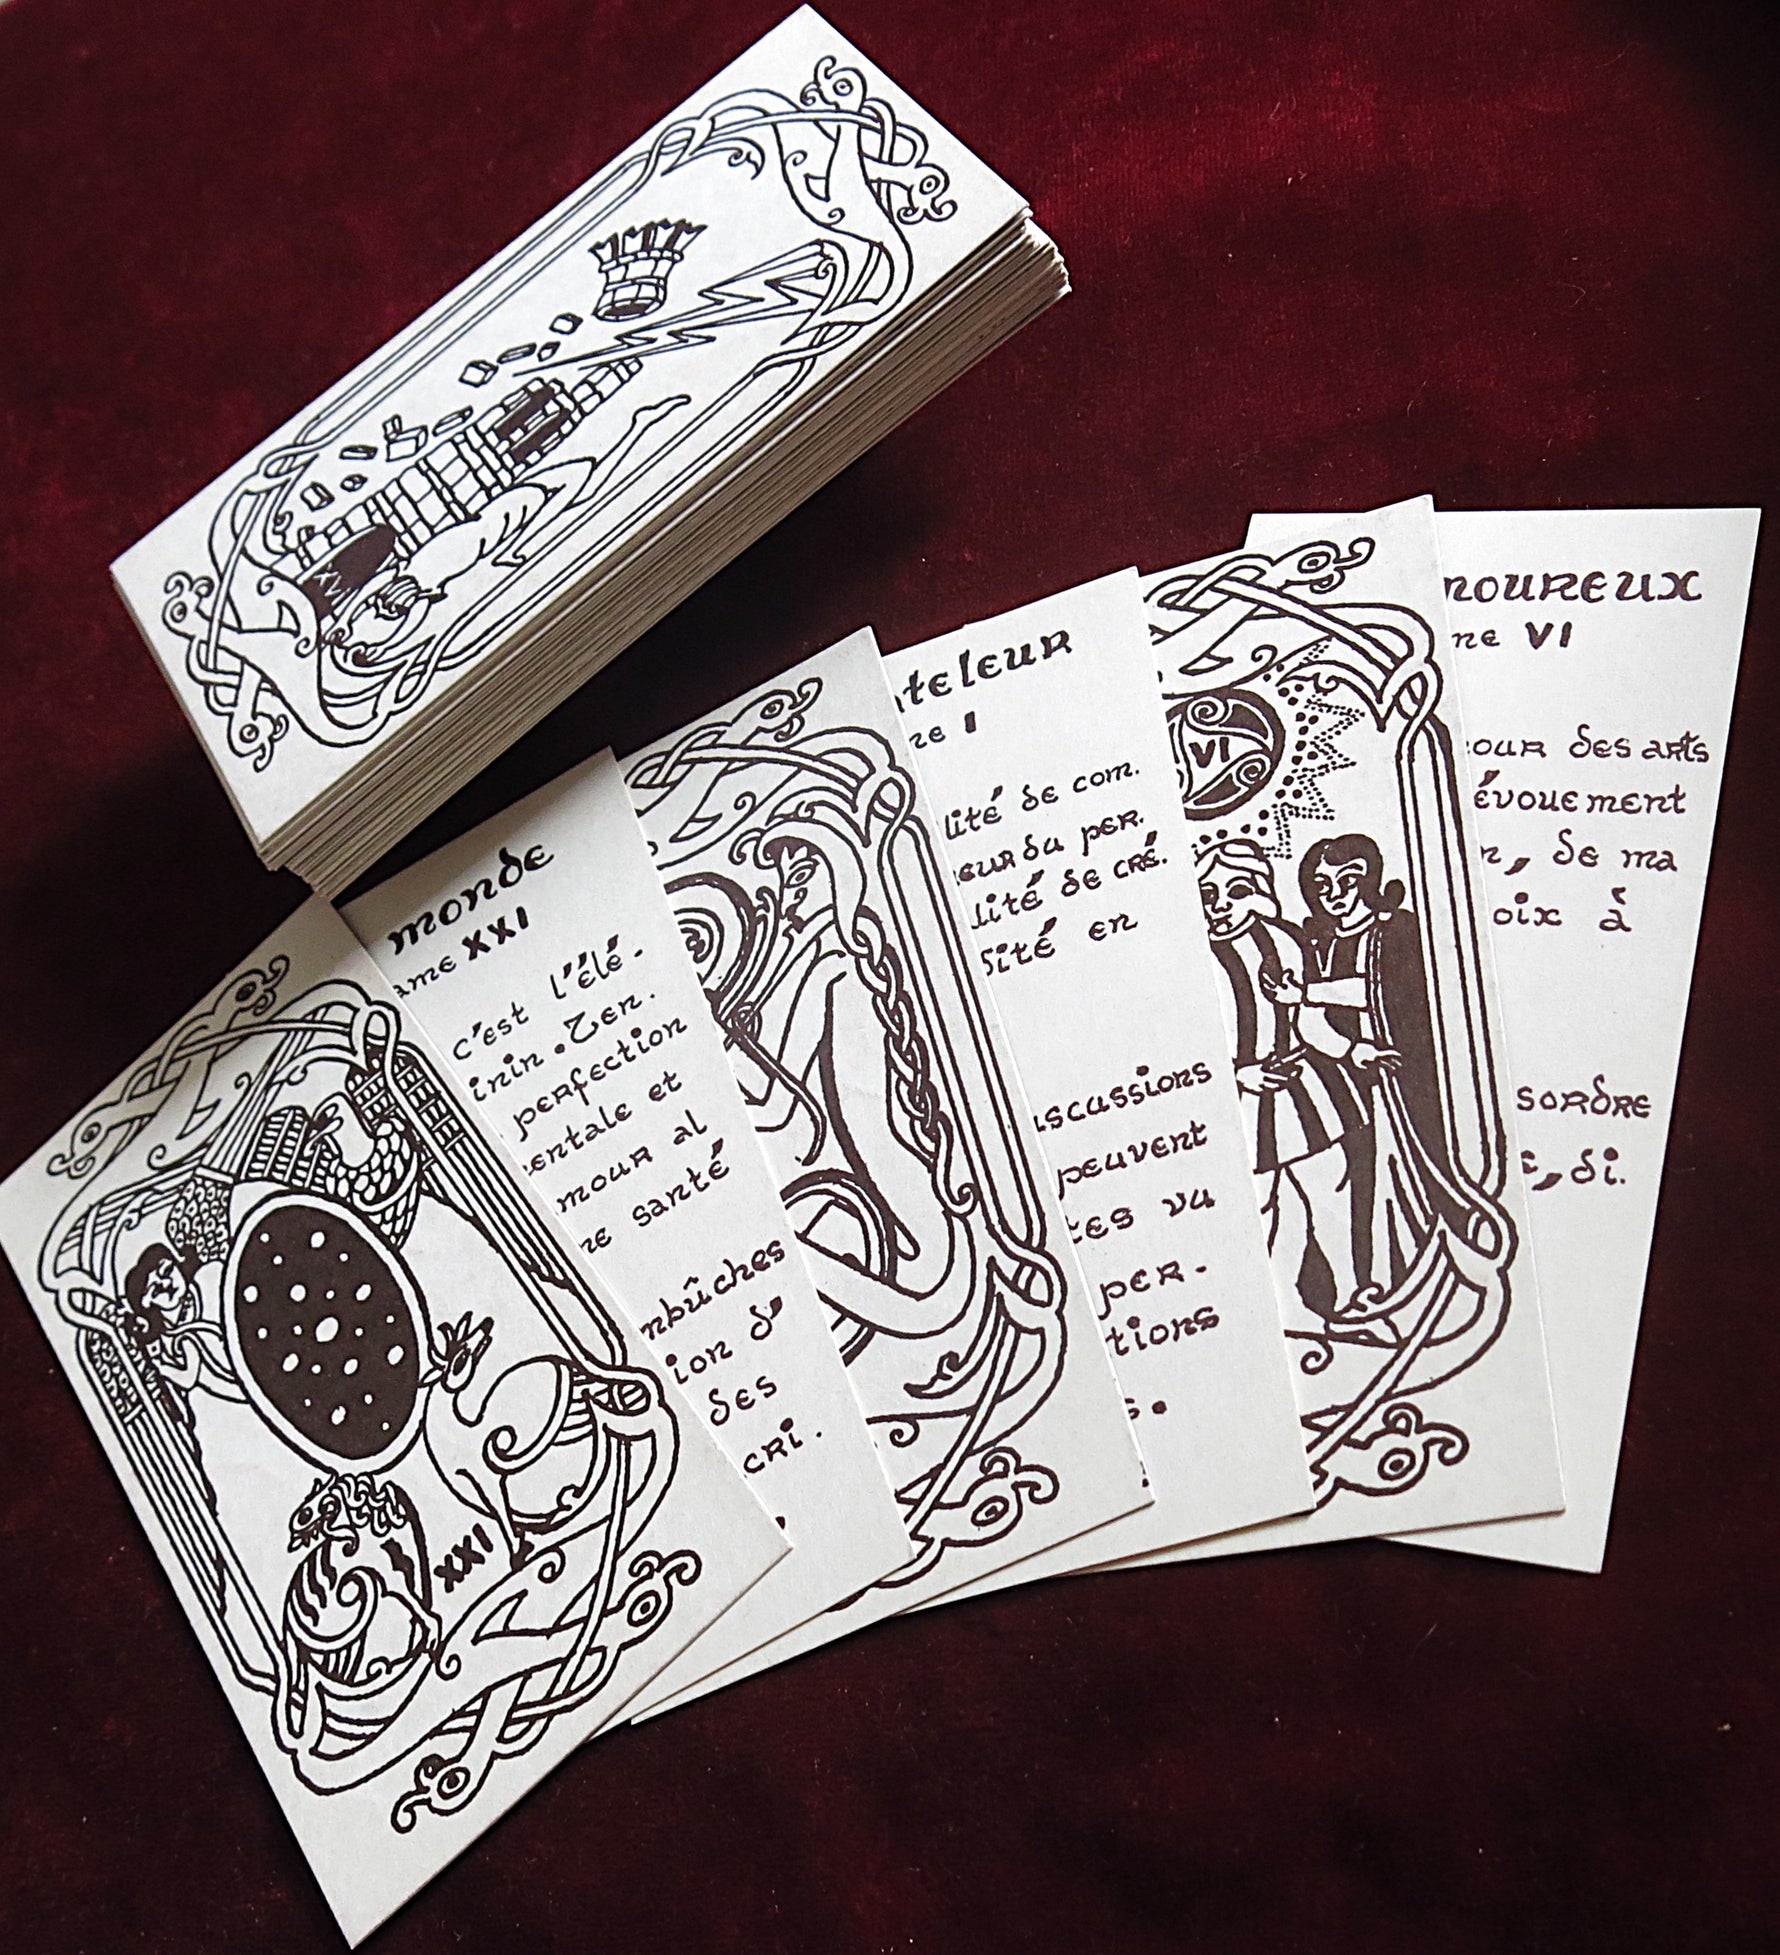 XXI
monde
ame XXI
c'est l'élé.
inin. Zen.
perfection
entale et
mour al
ne santé
mbûches
ion d'
des
cri.
teleur
I
lité de com.
eur du per.
lité de cré.
sité en
scussions
peuvent
tes vu
per.
tions
s.
VI
moureux
me VI
our des arts
évouement
n, de ma
oix à
sordre
e, di.